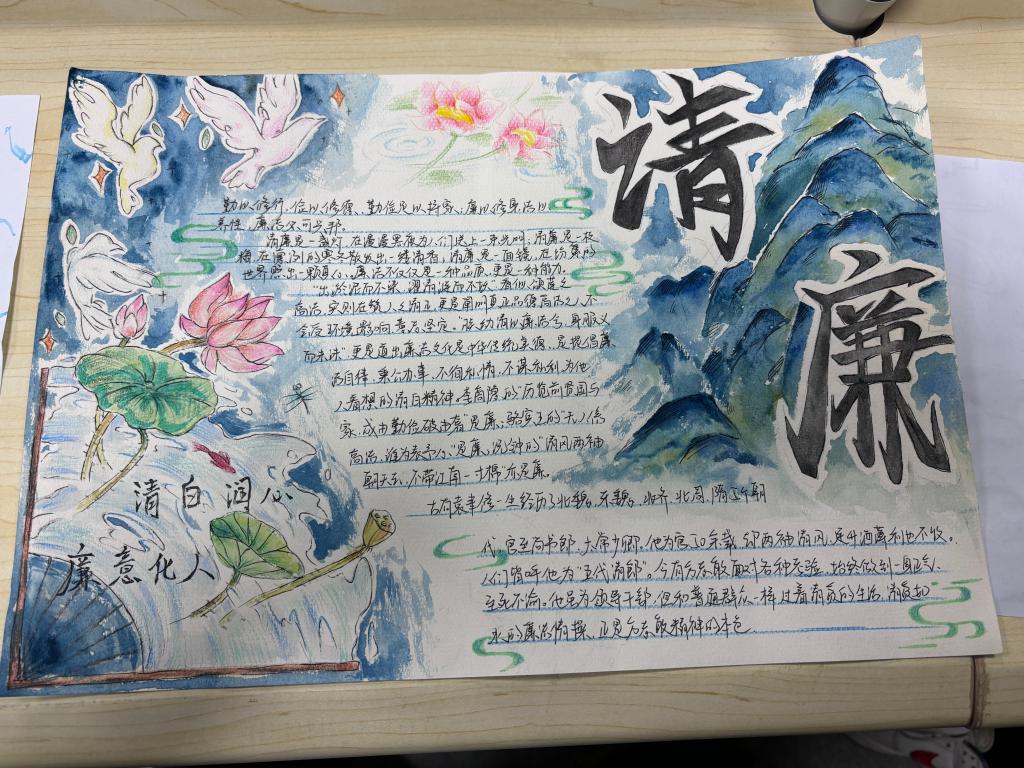 请
廉
勤以修行、俭以修德、勤俭足以持家、廉以修身洁以
养性，廉洁又可兴邦。
清廉是一盏灯，在漫漫黑夜为人们送上一束光明；清廉是一枝
梅，在凛冽的寒冬散发出一缕清香；清廉是一面镜，在纷繁的
世界照出一颗真心。廉洁不仅仅是一种品质、更是一种能力。
"出淤泥而不染，濯清涟而不妖"看似颂莲之
高洁，实则在赞人之清正，更是阐明真正品德高尚之人，不
会受环境影响意志坚定。"朕幼清以廉洁兮，身服义
而未沫"更是道出廉洁文化是中华传统美德，是提倡廉
洁自律，秉公办事，不徇私情，不谋私利，为他
人着想的清白精神。李商隐的"历览前贤国与
家，成由勤俭破由奢"是廉，骆宾王的"无人信
高洁，谁为表予心"是廉，况钟的"清风两袖
朝天去，不带江南一寸棉"亦是廉。
古有袁聿修一生经历了北魏、东魏、北齐、北周、隋五个朝
代，官至尚书郎、太常少卿，他为官50余载，却两袖清风，是升酒薄利也不收。
人们皆呼他为"五代清郎"。今有方志敏面对各种考验，始终做到一身正气，
至死不渝。他虽为领导干部，但和普通群众一样过着清贫的生活，清贫如
水的廉洁情操，正是方志敏精神的本色
清白润心
廉意化人